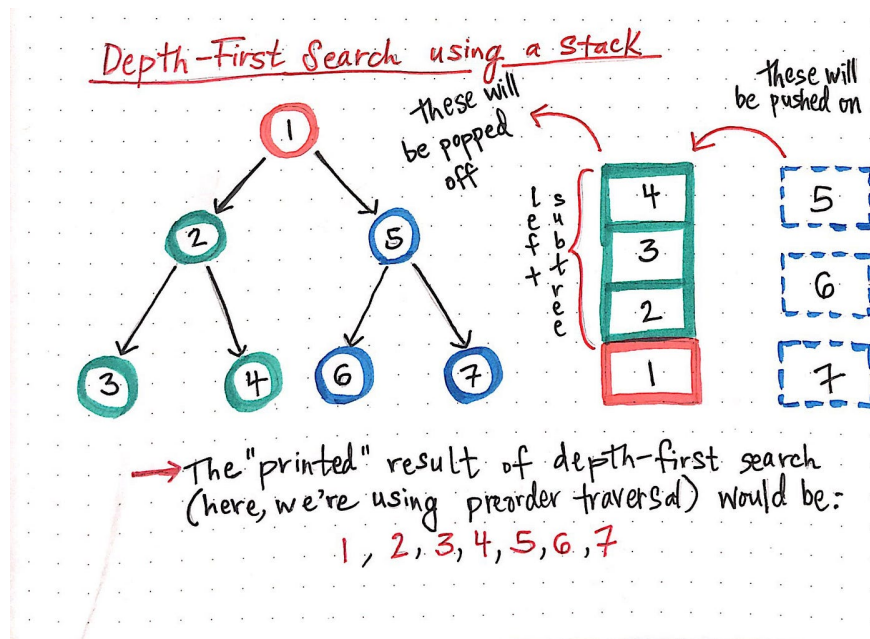 Depth-First Search using a Stack
these will
be popped
off
these will
be pushed on
1
2
5
3
4
6
7
left
subtree
4
3
2
1
5
6
7
→ The "printed" result of depth-first search
(here, we're using preorder traversal) would be:
1, 2, 3, 4, 5, 6, 7